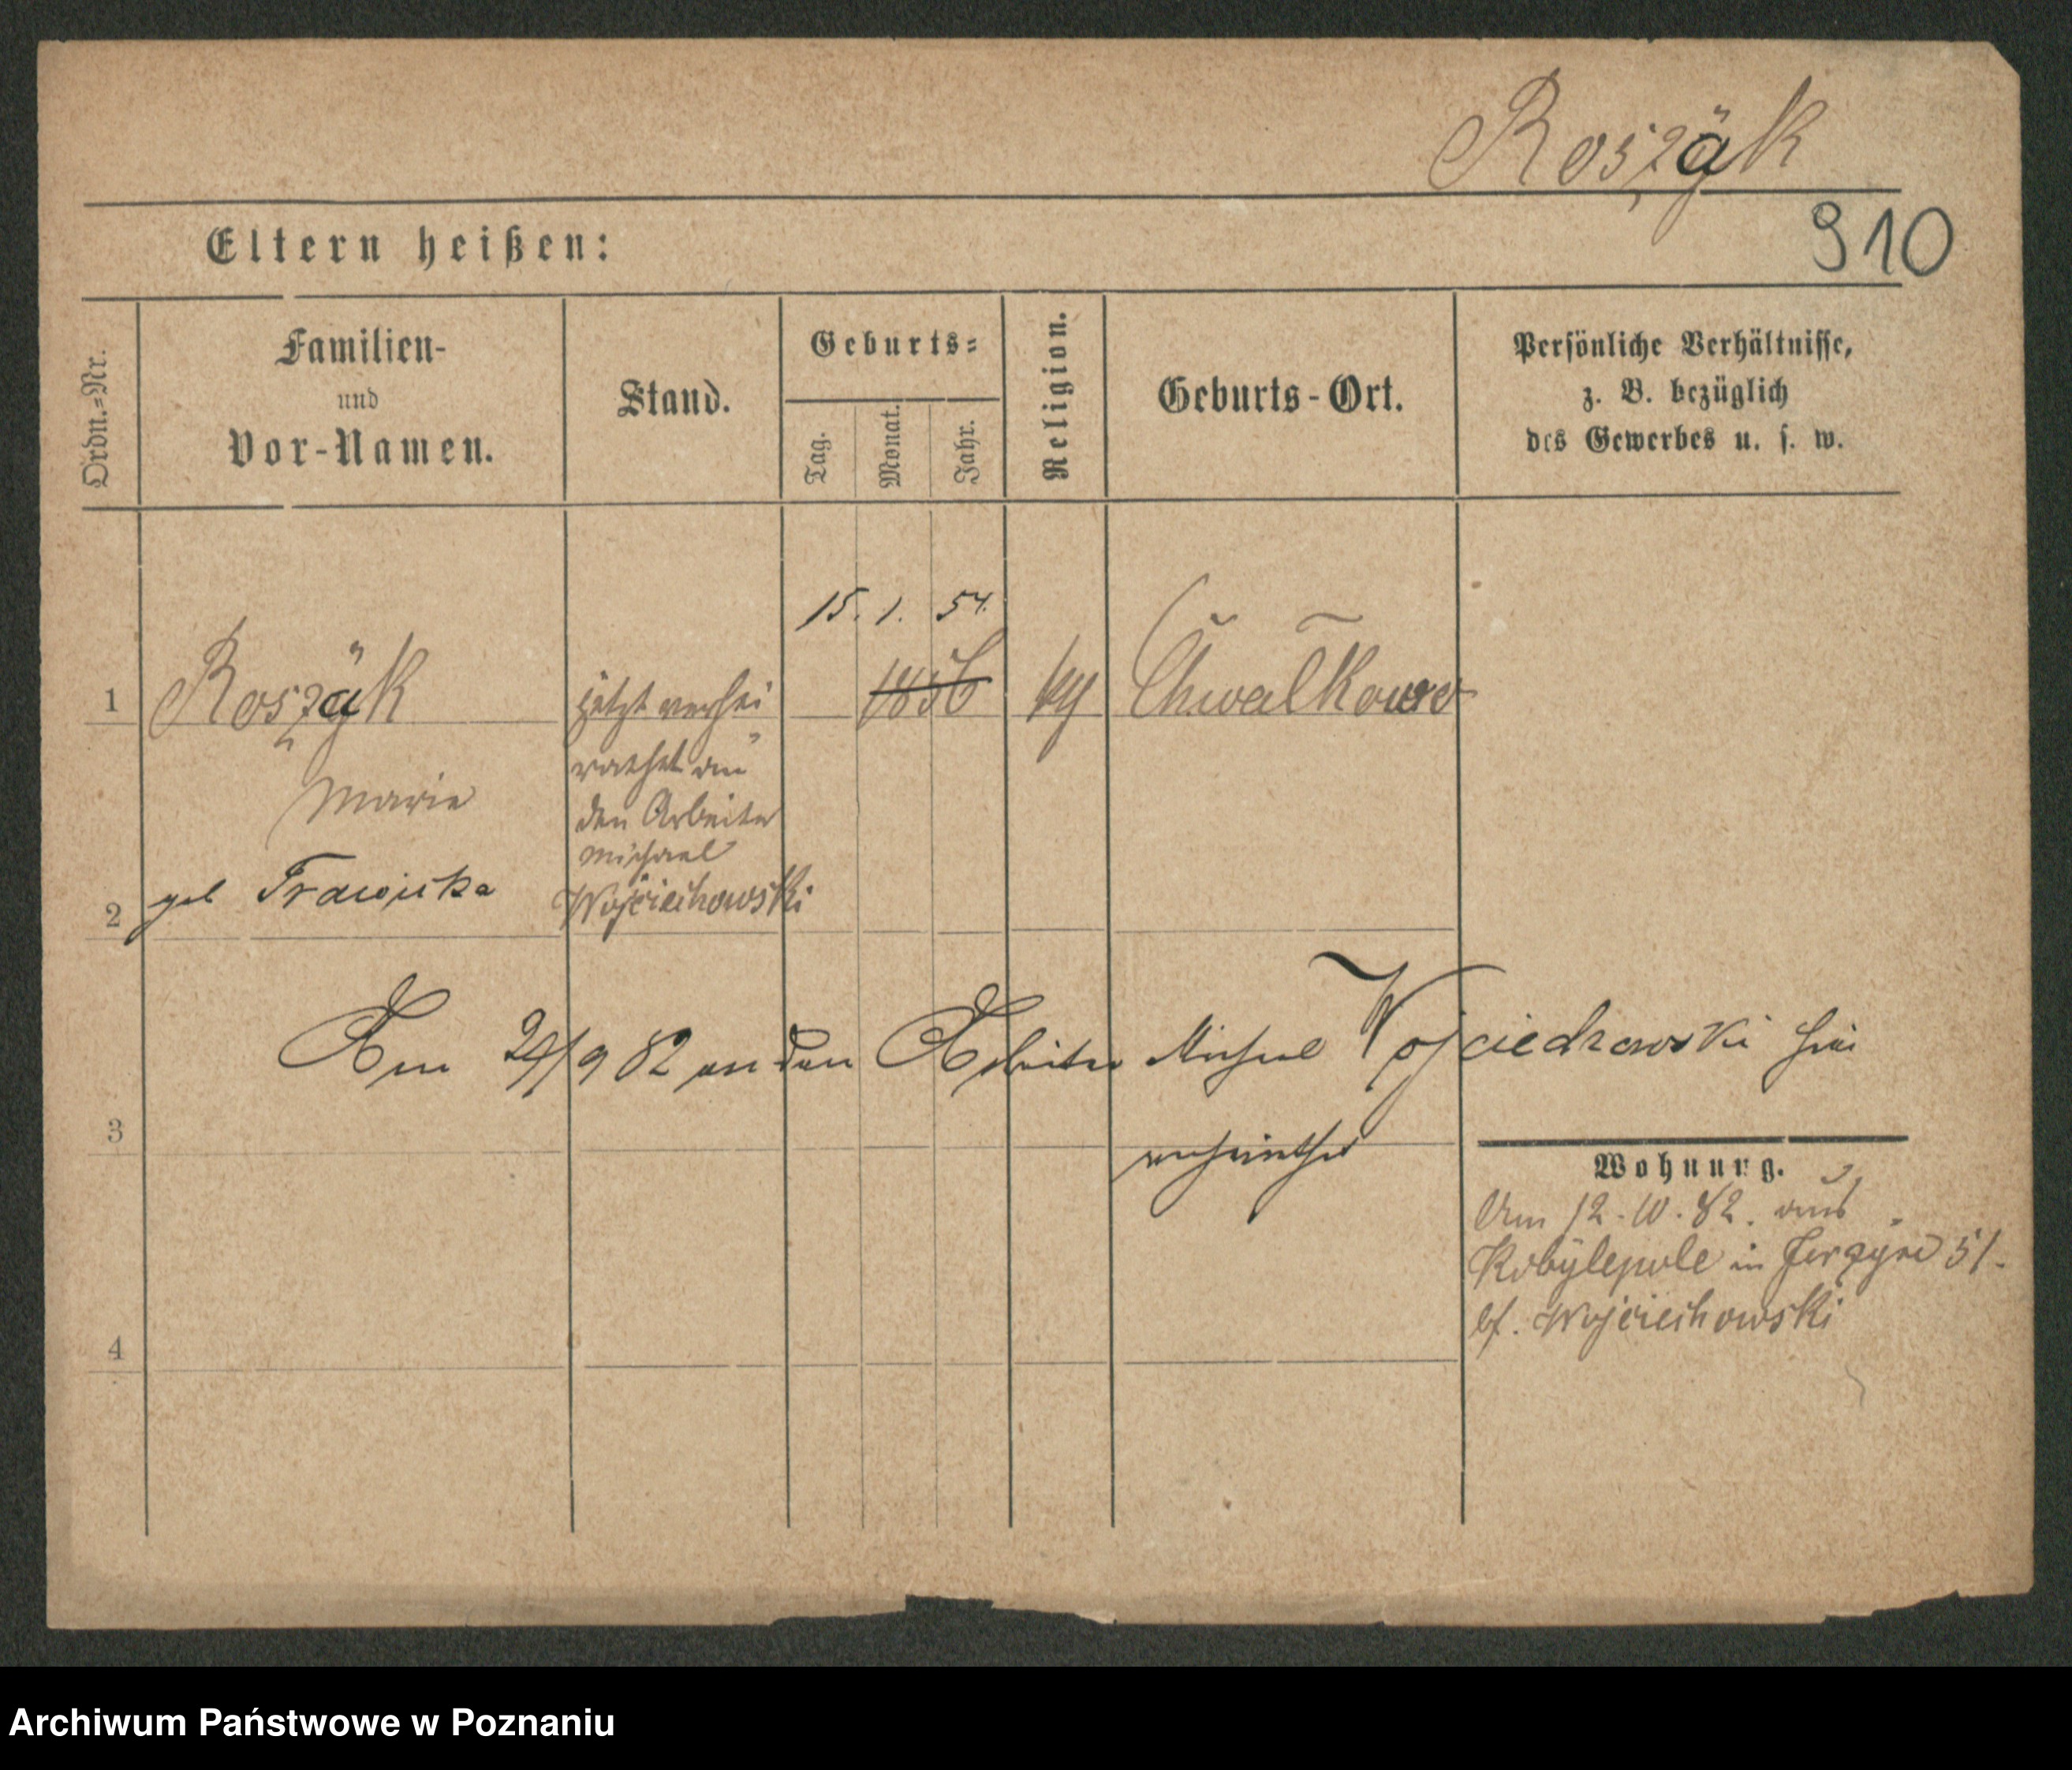 Roszak
910
Eltern heißen:
Ordn.-Nr.
Familien-
und
Vor-Namen.
Stand.
Geburts-
Tag.
Monat.
Jahr.
Religion.
Geburts-Ort.
Persönliche Verhältnisse,
z. B. bezüglich
des Gewerbes u. s. w.
15. 1. 54.
1 Roszak jetzt verhei 1856 Chwalkowo
Marie rathet an
den Arbeiter
Michael
2 geb Wojciechowski
Am 24/9 82 an den Arbeiter Michael Wojciechowski hier
3 verheirathet
Wohnung.
Am 12.10.82. aus
Kobylepole in 51.
bf. Wojciechowski
4
Archiwum Państwowe w Poznaniu